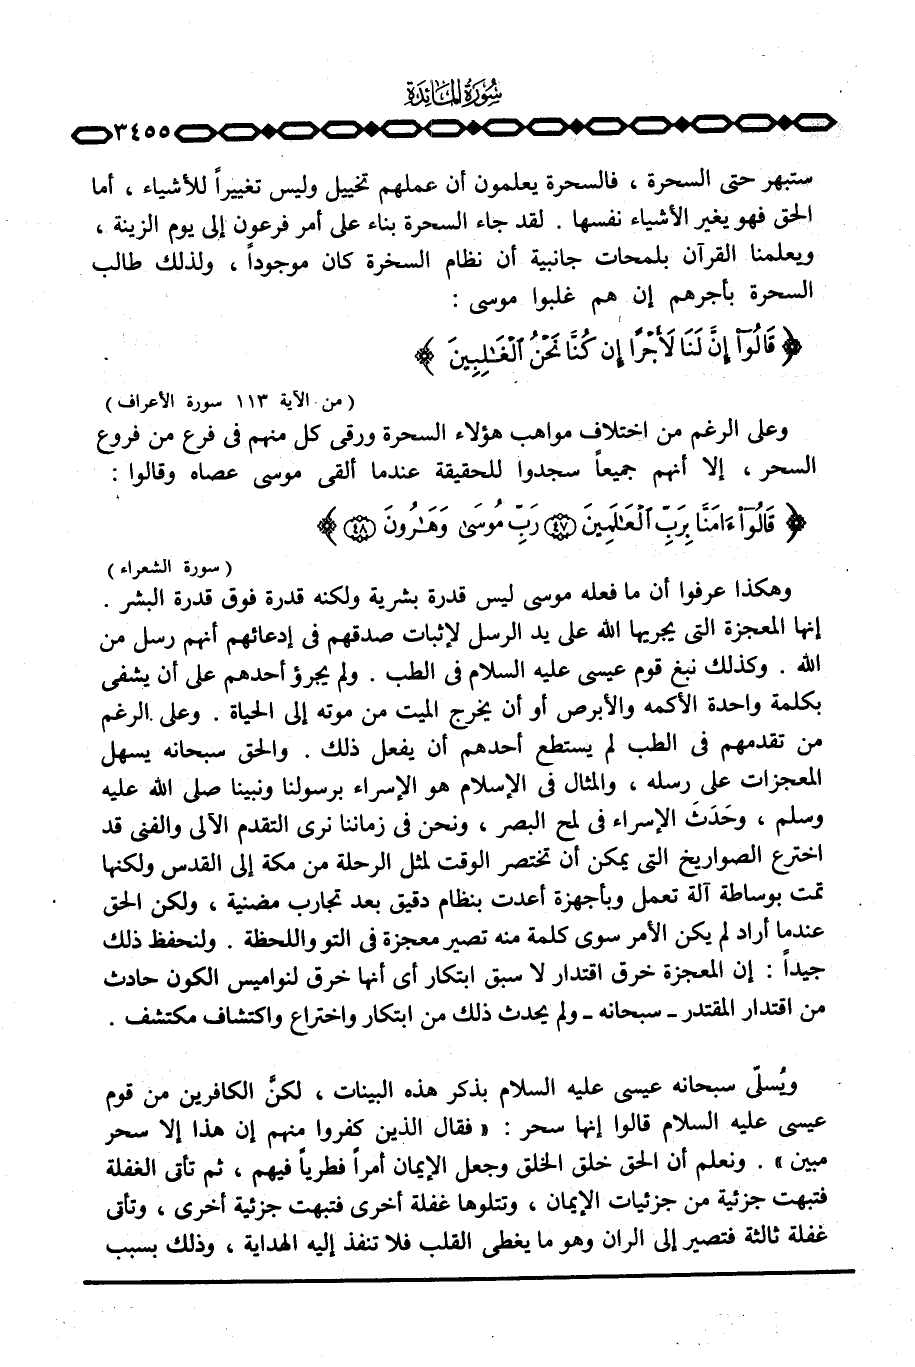 سُورَةُ المَائِدَة
٣٤٥٥
ستبهر حتى السحرة ، فالسحرة يعلمون أن عملهم تخييل وليس تغييراً للأشياء ، أما
الحق فهو يغير الأشياء نفسها . لقد جاء السحرة بناء على أمر فرعون إلى يوم الزينة ،
ويعلمنا القرآن بلمحات جانبية أن نظام السخرة كان موجوداً ، ولذلك طالب
السحرة بأجرهم إن هم غلبوا موسى :
﴿ قَالُوٓاْ إِنَّ لَنَا لَأَجْرًا إِن كُنَّا نَحْنُ ٱلْغَـٰلِبِينَ ﴾
( من الآية ١١٣ سورة الأعراف )
وعلى الرغم من اختلاف مواهب هؤلاء السحرة ورقى كل منهم فى فرع من فروع
السحر ، إلا أنهم جميعاً سجدوا للحقيقة عندما ألقى موسى عصاه وقالوا :
﴿ قَالُوٓاْ ءَامَنَّا بِرَبِّ ٱلْعَـٰلَمِينَ ٤٧ رَبِّ مُوسَىٰ وَهَـٰرُونَ ٤٨ ﴾
( سورة الشعراء )
وهكذا عرفوا أن ما فعله موسى ليس قدرة بشرية ولكنه قدرة فوق قدرة البشر .
إنها المعجزة التى يجريها الله على يد الرسل لإثبات صدقهم فى إدعائهم أنهم رسل من
الله . وكذلك نبغ قوم عيسى عليه السلام فى الطب . ولم يجرؤ أحدهم على أن يشفى
بكلمة واحدة الأكمه والأبرص أو أن يخرج الميت من موته إلى الحياة . وعلى الرغم
من تقدمهم فى الطب لم يستطع أحدهم أن يفعل ذلك . والحق سبحانه يسهل
المعجزات على رسله ، والمثال فى الإسلام هو الإسراء برسولنا ونبينا صلى الله عليه
وسلم ، وحَدَثَ الإسراء فى لمح البصر ، ونحن فى زماننا نرى التقدم الآلى والفنى قد
اخترع الصواريخ التى يمكن أن تختصر الوقت لمثل الرحلة من مكة إلى القدس ولكنها
تمت بوساطة آلة تعمل وبأجهزة أعدت بنظام دقيق بعد تجارب مضنية ، ولكن الحق
عندما أراد لم يكن الأمر سوى كلمة منه تصير معجزة فى التو واللحظة . ولنحفظ ذلك
جيداً : إن المعجزة خرق اقتدار لا سبق ابتكار أى أنها خرق لنواميس الكون حادث
من اقتدار المقتدر ـ سبحانه ـ ولم يحدث ذلك من ابتكار واختراع واكتشاف مكتشف .
ويُسلّى سبحانه عيسى عليه السلام بذكر هذه البينات ، لكنَّ الكافرين من قوم
عيسى عليه السلام قالوا إنها سحر : « فقال الذين كفروا منهم إن هذا إلا سحر
مبين » . ونعلم أن الحق خلق الخلق وجعل الإيمان أمراً فطرياً فيهم ، ثم تأتى الغفلة
فتبهت جزئية من جزئيات الإيمان ، وتتلوها غفلة أخرى فتبهت جزئية أخرى ، وتأتى
غفلة ثالثة فتصير إلى الران وهو ما يغطى القلب فلا تنفذ إليه الهداية ، وذلك بسبب